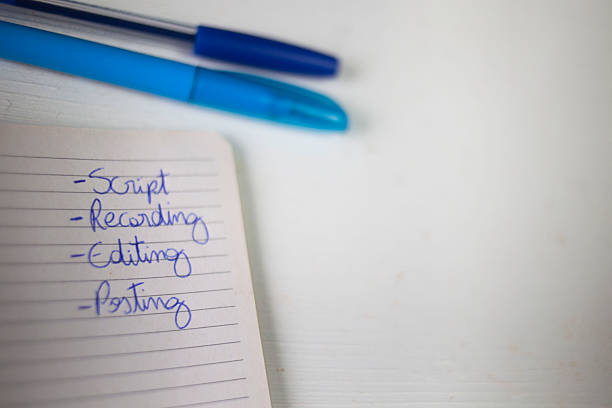 -Script
-Recording
-Editing
-Posting